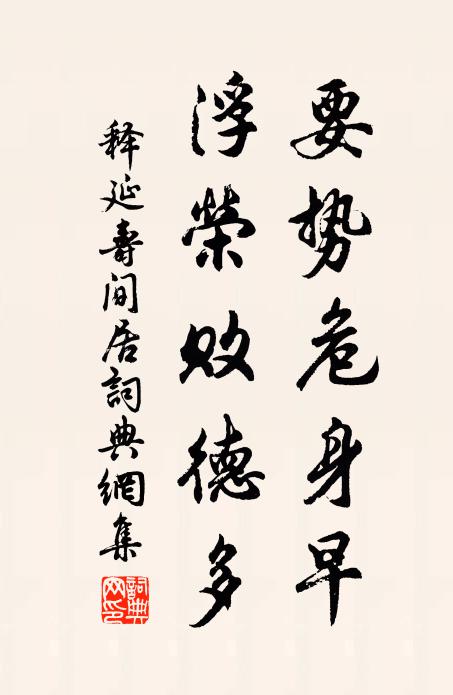 要势危身早
浮榮败德多
释延壽间居詞典網集
詞典网印